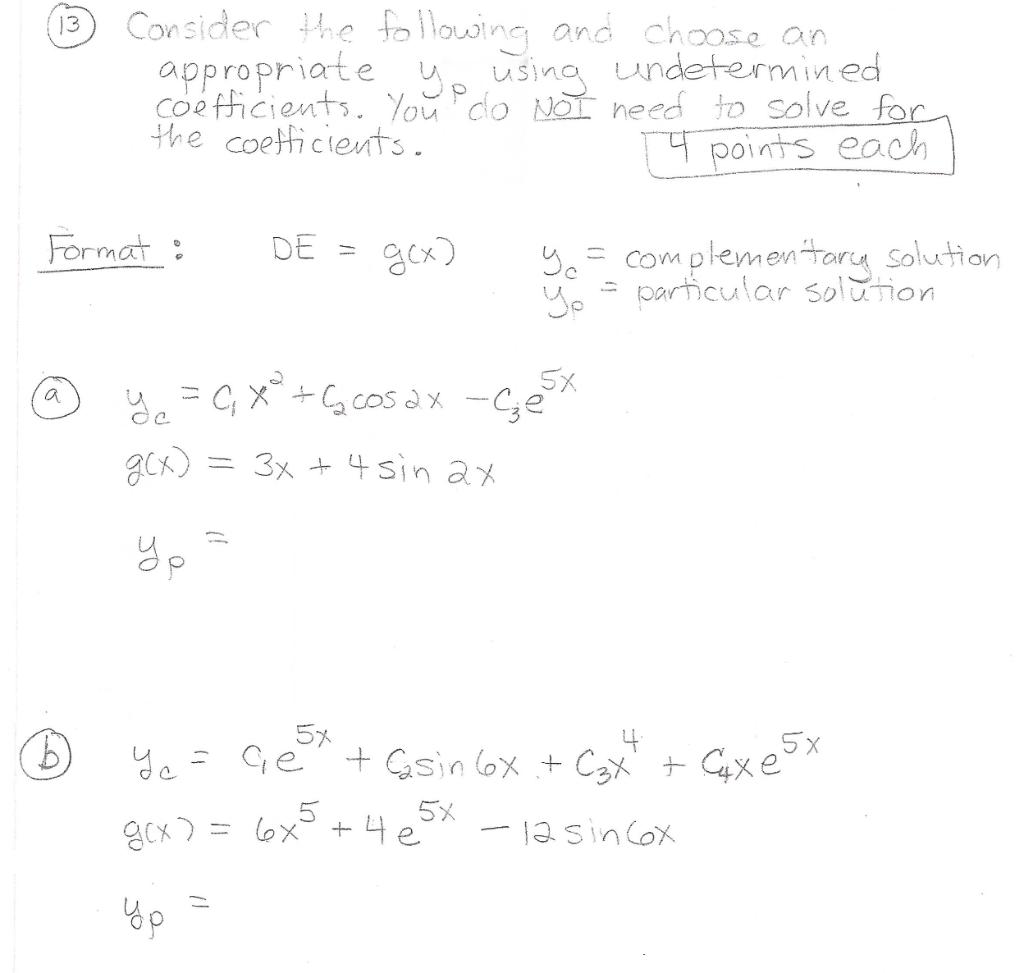 (13) Consider the following and choose an
appropriate yₚ using undetermined
coefficients. You do NOT need to solve for
the coefficients.
4 points each
Format : DE = g(x) y_c = complementary solution
yₚ = particular solution
(a) y_c = c₁x² + c₂cos2x - c₃e⁵ˣ
g(x) = 3x + 4 sin 2x
yₚ =
(b) y_c = c₁e⁵ˣ + c₂sin6x + c₃x⁴ + c₄xe⁵ˣ
g(x) = 6x⁵ + 4e⁵ˣ - 12sin6x
yₚ =